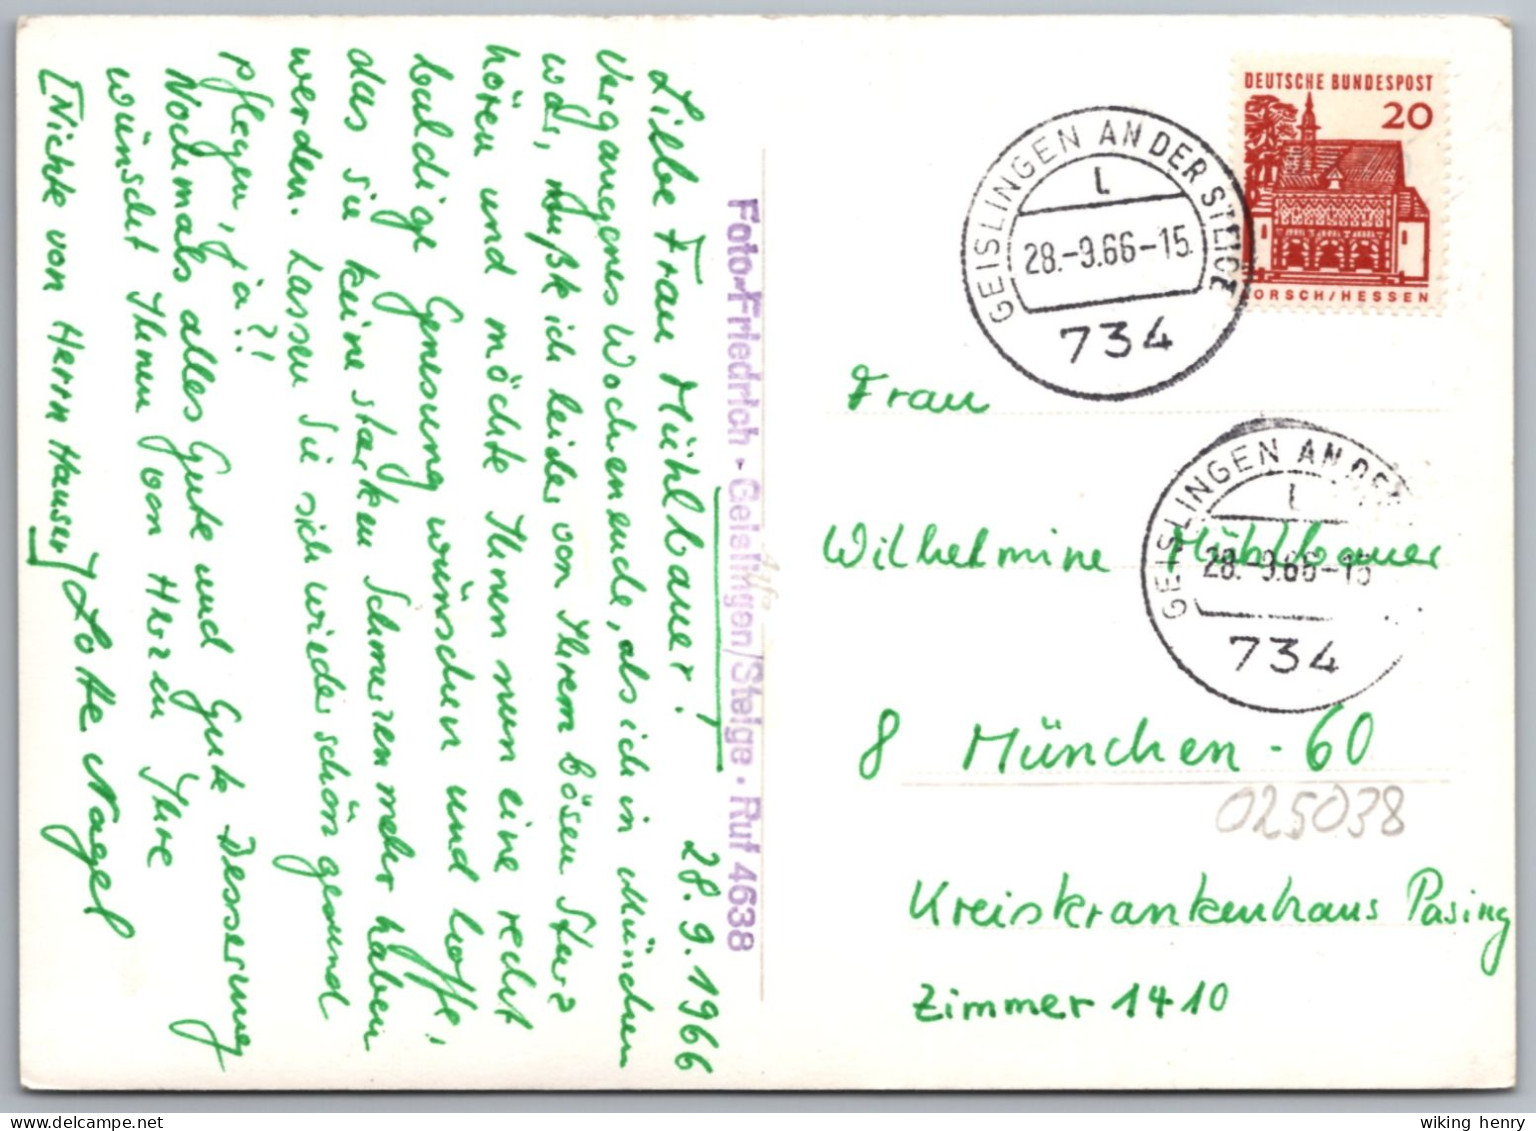 Liebe Frau Mühlbauer! 28.9.1966
Vergangenes Wochenende, als ich in München
war, mußte ich leider von Ihrem bösen Sturz
hören und möchte Ihnen nun eine recht
baldige Genesung wünschen und hoffe,
das sie keine starken Schmerzen mehr haben
werden. Lassen Sie sich wieder schön gesund
pflegen, ja?!
Nochmals alles Gute und Gute Besserung
wünscht Ihnen von Herzen Ihre
[Nichte von Herrn Hauser] Lotte Nagel
Foto-Friedrich - Geislingen/Steige · Ruf 4638
DEUTSCHE BUNDESPOST
20
LORSCH/HESSEN
GEISLINGEN AN DER STEIGE
l
28.-9.66-15
734
Frau
GEISLINGEN AN DER
l
28.-9.66-15
734
Wilhelmine Mühlbauer
8 München - 60
025038
Kreiskrankenhaus Pasing
Zimmer 1410
wiking henry